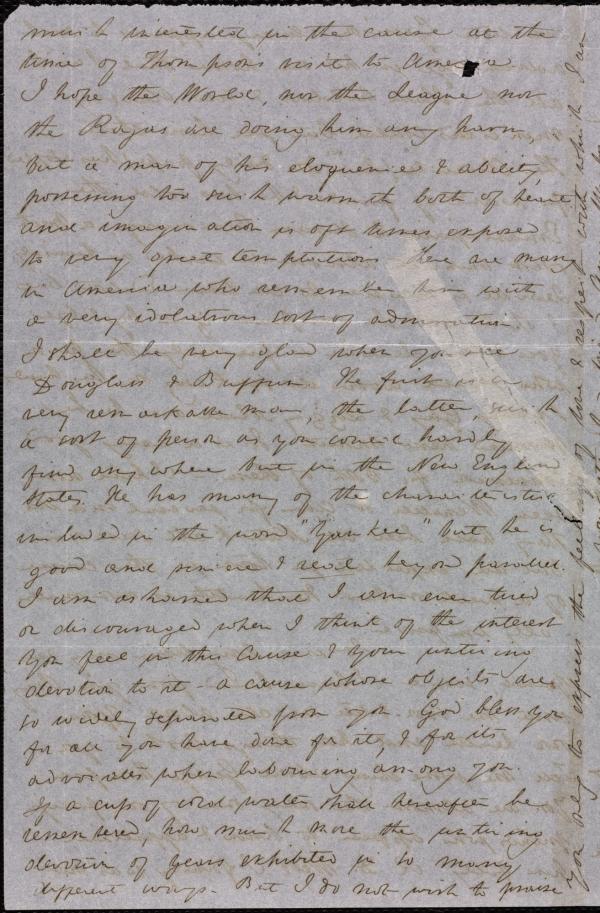 much interested in the cause at the
time of Thompsons visit to America
I hope the World, nor the League nor
the Rajas are doing him any harm,
but a man of his eloquence & ability,
possessing too such warmth both of heart
and imagination is oft times exposed
to very great temptations There are many
in America who remember him with
a very idolatrous sort of admiration.
I shall be very glad when you see
Douglass & Buffum. The first is a
very remarkable man, the latter, such
a sort of person as you could hardly
find any where but in the New England
States. He has many of the characteristics
included in the word "Yankee" but he is
good and sincere & real beyond parallel.
I am ashamed that I am ever tired
or discouraged when I think of the interest
you feel in this cause & your untiring
devotion to it - a cause whose objects are
so widely separated from you. God bless you
for all you have done for it, & for its
advocates when labouring among you.
If a cup of cold water shall hereafter be
remembered, how much more the untiring
devotion of years exhibited in so many
different ways. But I do not wish to praise
you only to express the feelings of love & respect with which I am